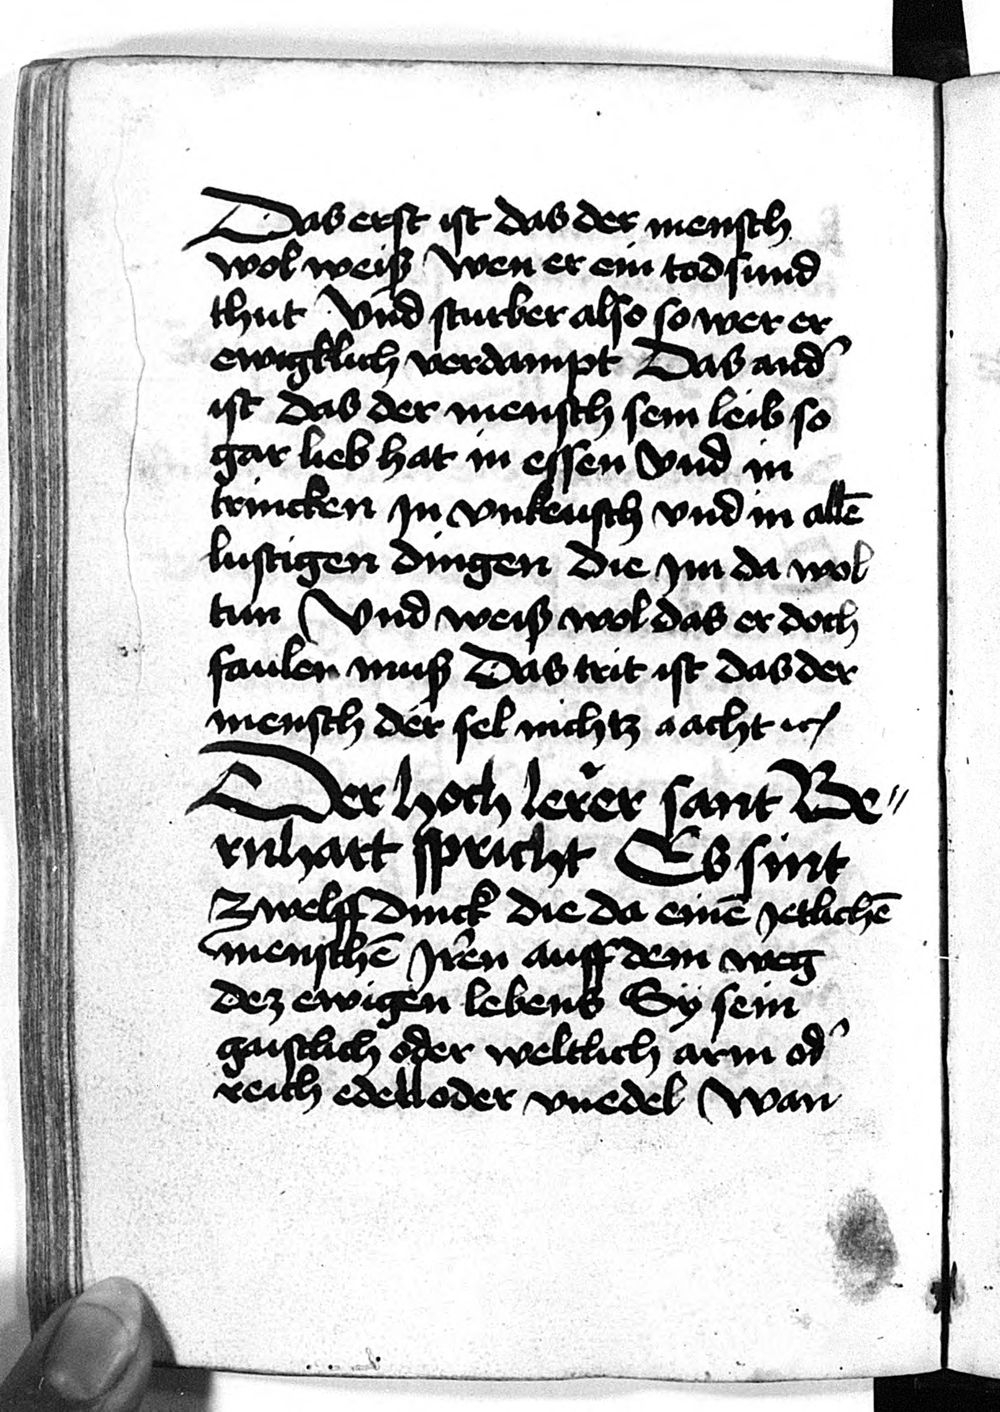 Das erst ist das der mensch
wol weiß Wen er ein tod sund
thut Vnd sturber also so wer er
ewigklich verdampt Das and̓
ist das der mensch sein leib so
gar lieb hat in essen Vnd in
trincken Jn vnkeusch vnd in allē
lustigen dingen die Jm da wol
tun Vnd weiß wol das er doch
faulen muß Das trit ist das der
mensch der sel nichtz acht
Der hoch lerer sant Be〃
rnhart spricht Es sint
zwelff dinck die da einē Jetlichē
menschē Jren auff dem weg
dez ewigen lebens Sy sein
gaistlich oder weltlich arm od̓
reich edell oder vnedel Wan